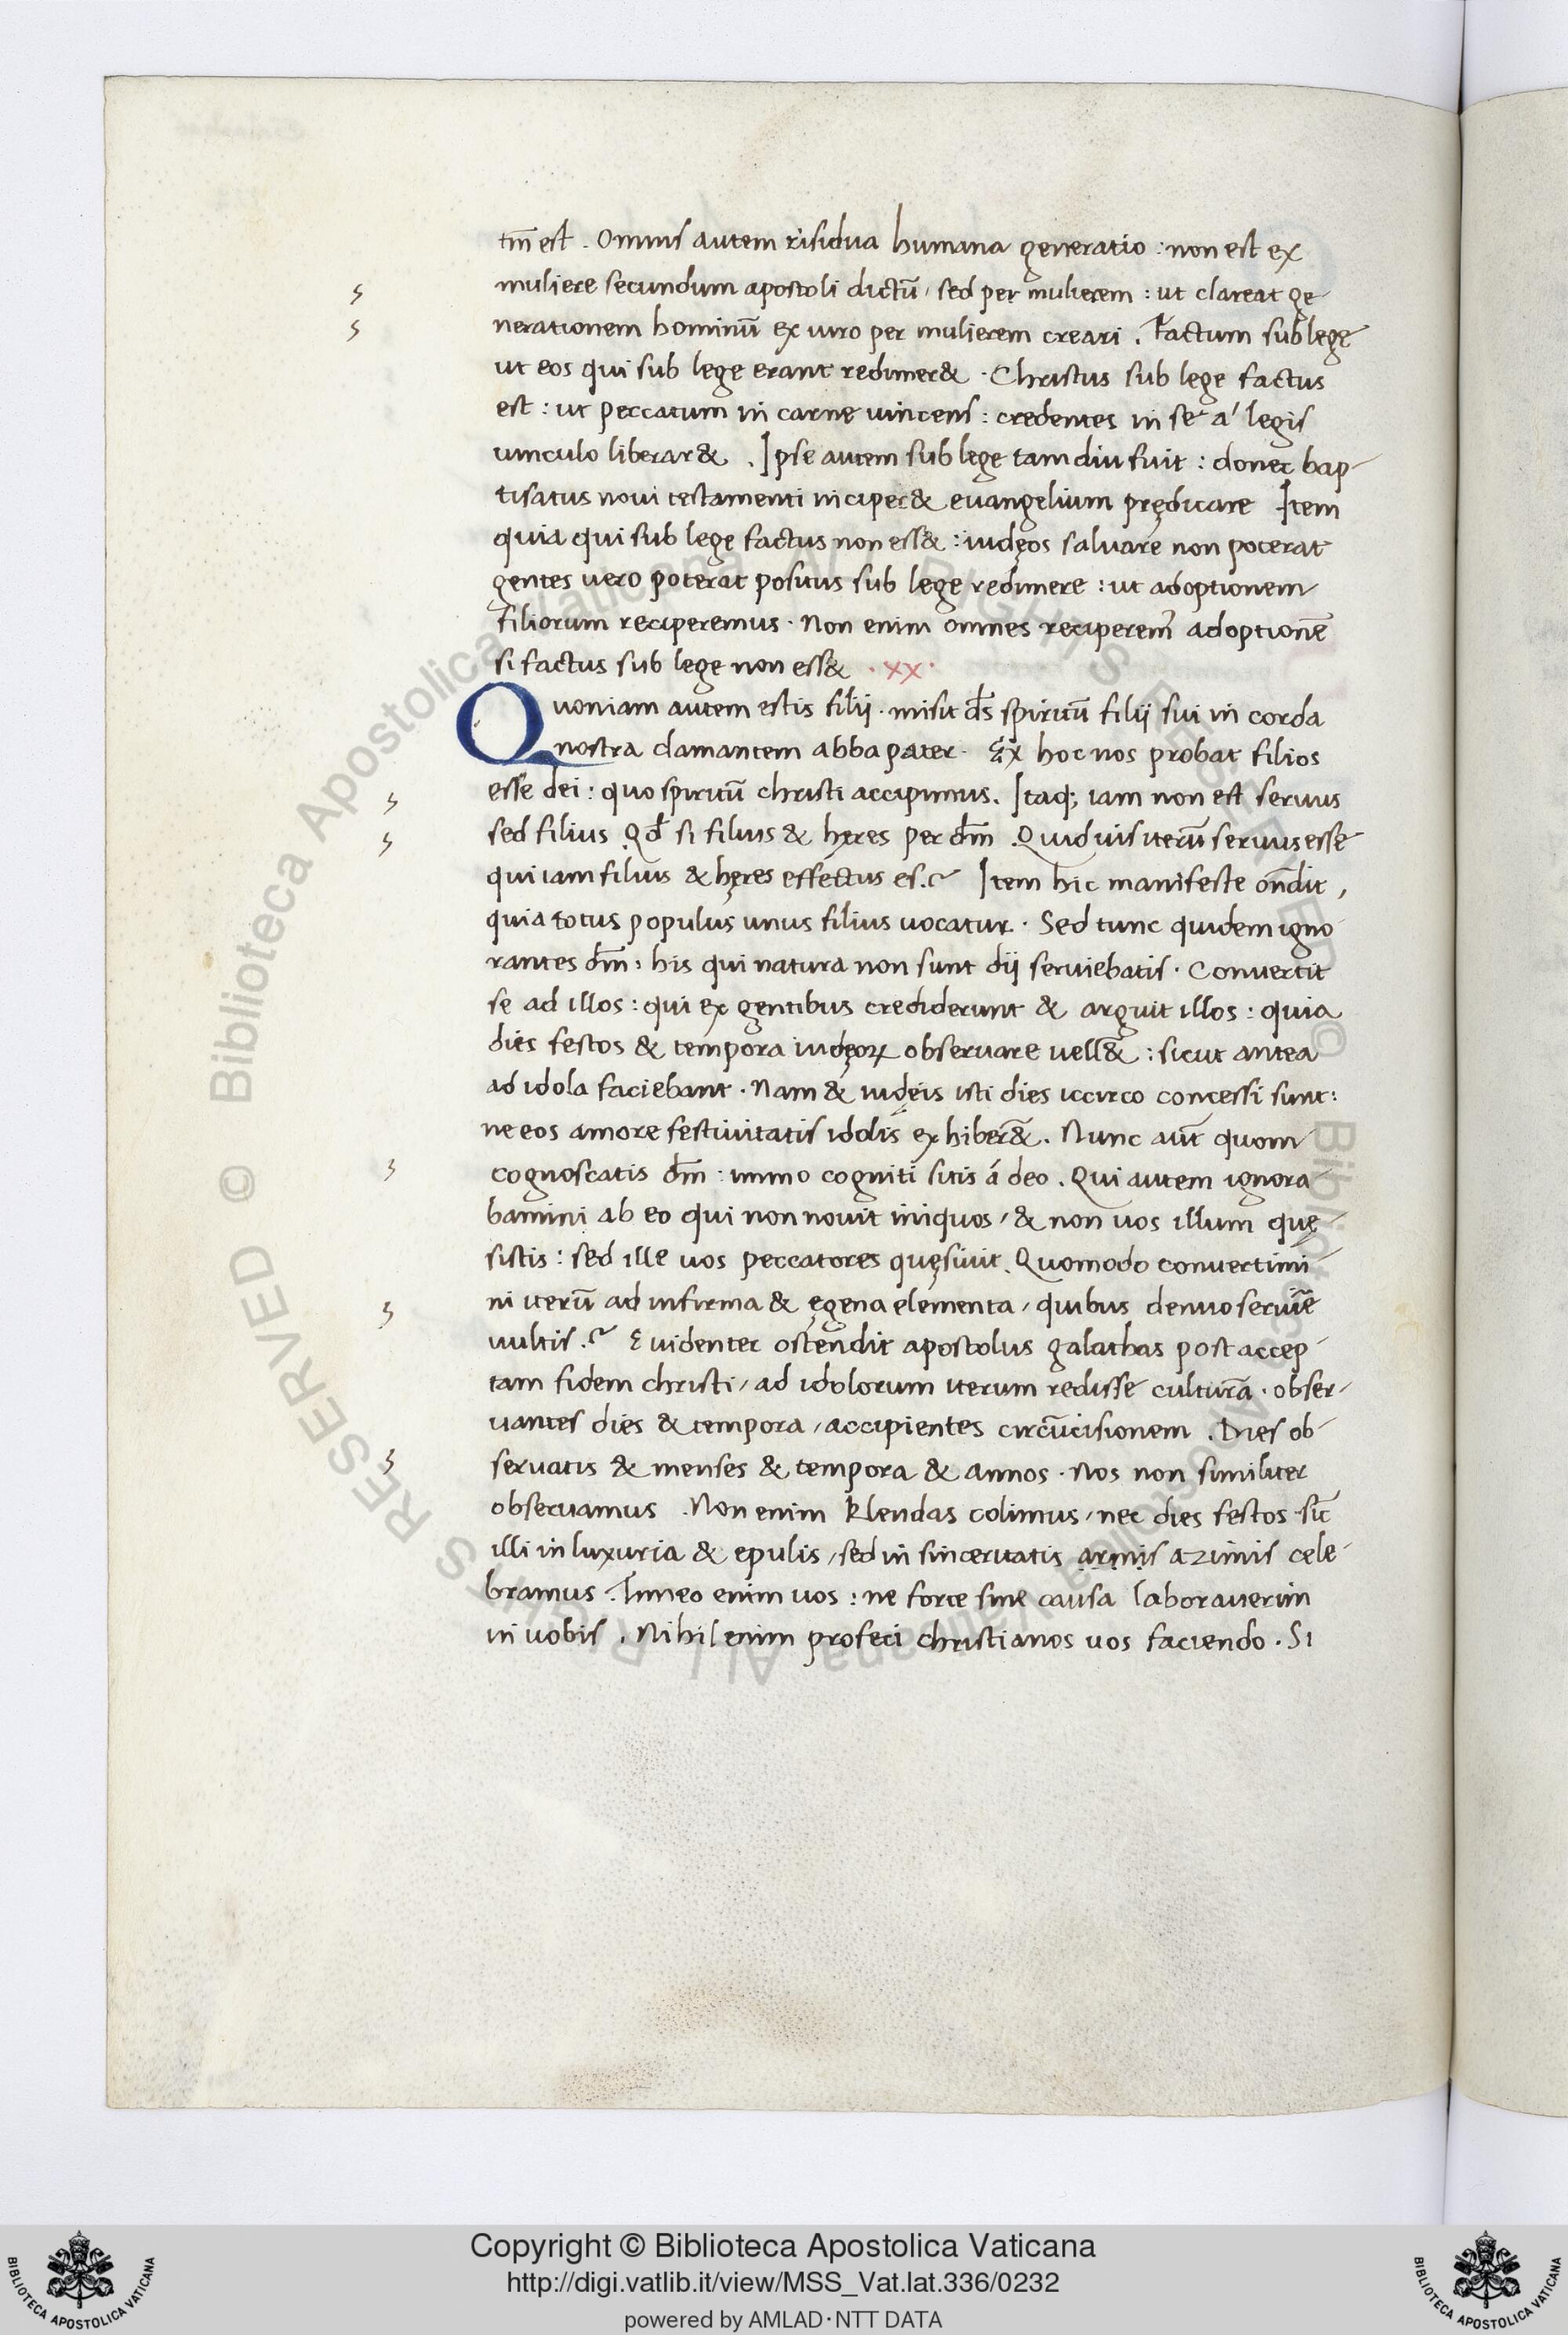 tm̄ est. Omnis autem risidua humana generatio : non est ex
muliere secundum apostoli dictū, sed per mulierem : ut clareat ge
nerationem hominū ex uiro per mulierem creari. Factum sub lege
ut eos qui sub lege erant redimer& · Christus sub lege factus
est : ut peccatum in carne uincens : credentes in se á legis
uinculo liberar& . Ipse autem sub lege tamdiu fuit : donec bap-
tisatus noui testamenti inciper& euangelium prędicare Item
quia qui sub lege factus non ess& : iudęos saluare non poterat
gentes uero poterat positus sub lege redimere : ut adoptionem
filiorum reciperemus · Non enim omnes reciperem̃ adoptionē
si factus sub lege non ess& · xx ·
Quoniam autem estis filij · misit d̄s spiritū filij sui in corda
nostra clamantem abba pater · Ex hoc nos probat filios
esse dei : quo spiritū christi accipimus. Itaq; iam non est seruus
sed filius. Qđ si filius & hęres per dm̄. Quid uis iterū seruus esse
qui iam filius & hęres effectus es? Item hic manifeste on̄dit,
quia totus populus unus filius uocatur · Sed tunc quidem igno
rantes dm̄ : his qui natura non sunt dij seruiebatis · Conuertit
se ad illos : qui ex gentibus crediderunt & arguit illos : quia
dies festos & tempora iudęoꝝ obseruare uell& : sicut antea
ad idola faciebant · Nam & iudęis isti dies iccirco concessi sunt :
ne eos amore festiuitatis idolis exhiber&̄. Nunc aut̄ quom
cognoscatis dm̄ : immo cogniti sitis á deo. Qui autem ignora
bamini ab eo qui non nouit iniquos, & non uos illum quę
sistis : sed ille uos peccatores quęsiuit. Quomodo conuertimi
ni iterū ad infirma & ęgena elementa, quibus denuo seruir̄e
uultis? Euidenter ostendit apostolus galathas post accep-
tam fidem christi, ad idolorum iterum redisse culturā · obser-
uantes dies & tempora, accipientes circūcisionem. Dies ob
seruatis & menses & tempora & annos · Nos non similiter
obseruamus. Non enim klendas colimus, nec dies festos sic̄
illi in luxuria & epulis, sed in sinceritatis armis azimis cele-
bramus. Timeo enim uos : ne forte sine causa laborauerim
in uobis. Nihil enim profeci christianos uos faciendo. Si
Copyright © Biblioteca Apostolica Vaticana
http://digi.vatlib.it/view/MSS_Vat.lat.336/0232
powered by AMLAD · NTT DATA
BIBLIOTECA APOSTOLICA VATICANA
BIBLIOTECA APOSTOLICA VATICANA